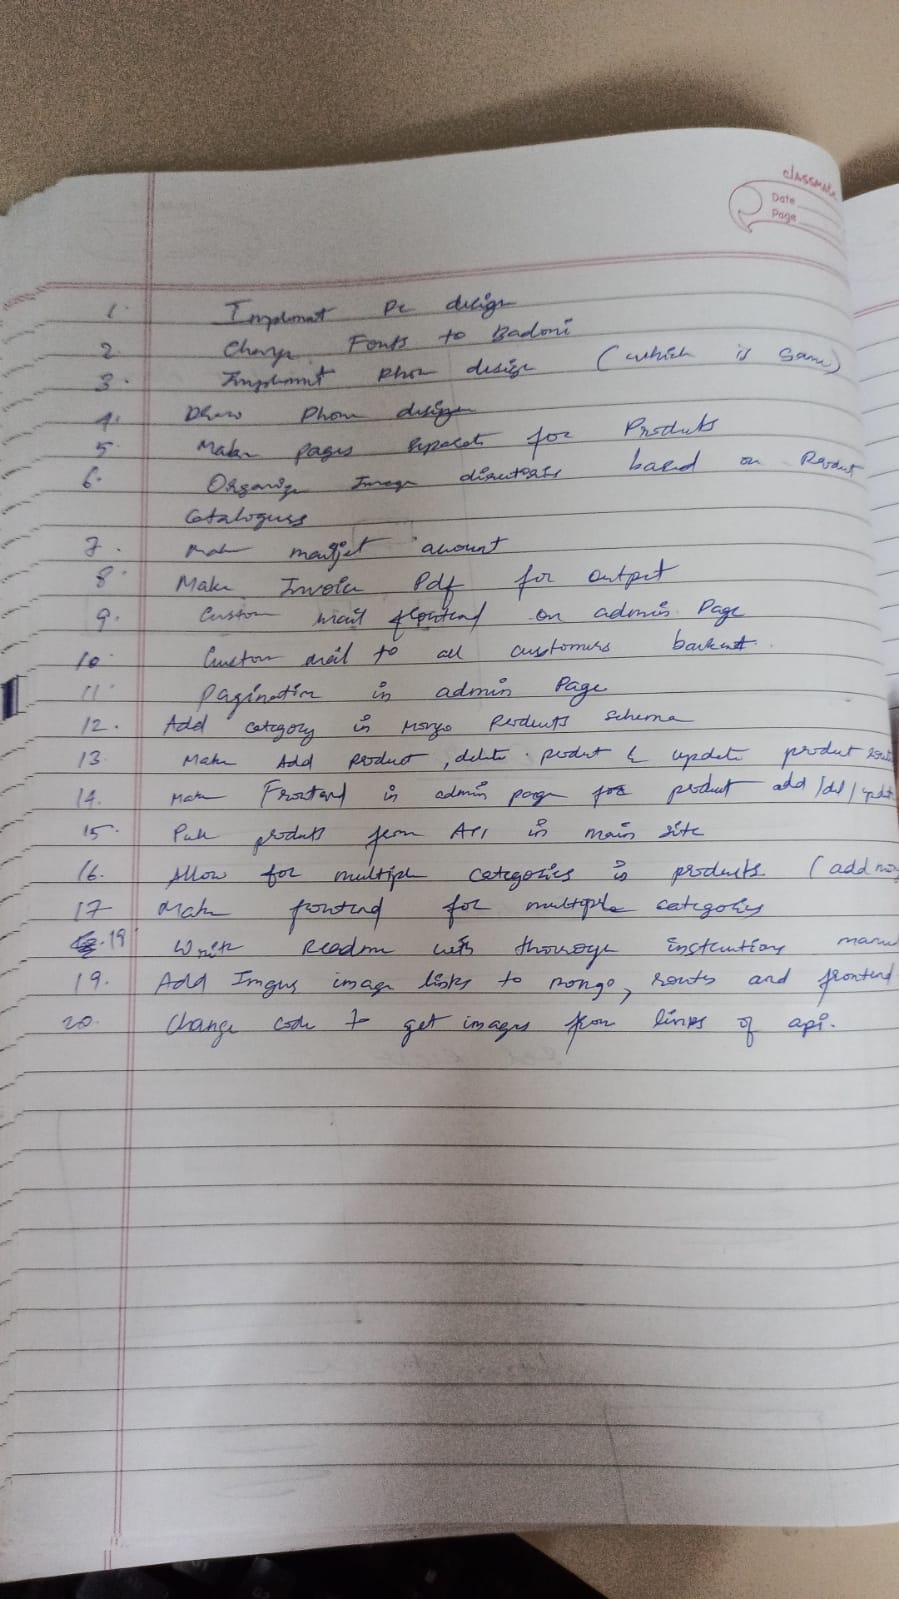 classmate
Date
Page
1. Implement Pc design
2. Change Fonts to Badoni
3. Implement Phone design (which is same)
4. Draw Phone design
5. Make pages separate for Products
6. Organize Image directories based on Product
Catalogues
7. Make account
8. Make Invoice Pdf for output
9. Custom mail frontend on admin Page
10. Custom mail to all customers backend.
11. Pagination in admin Page
12. Add category in Mongo Products schema
13. Make Add product, delete product & update product
14. Make Frontend in admin page for product add/del/update
15. Pull products from API in main site
16. Allow for multiple categories in products. (add
17. Make frontend for multiple categories
19. Write Readme with thorough instructions
19. Add Imgur image links to mongo, routes and frontend
20. Change code to get images from links of api.